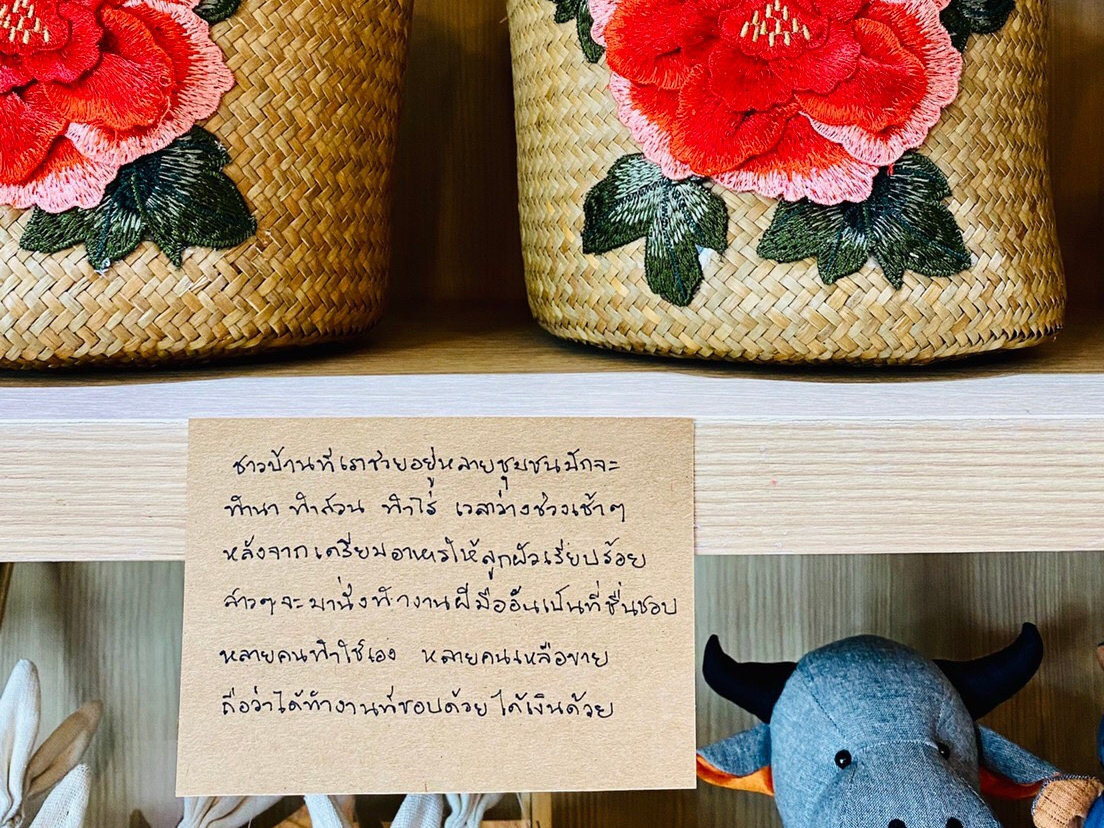 ชาวบ้านที่เราช่วยอยู่หลายชุมชนมักจะ
ทำนา ทำสวน ทำไร่ เวลาว่างช่วงเช้าๆ
หลังจากเตรียมอาหารให้ลูกผัวเรียบร้อย
สาวๆจะมานั่งทำงานฝีมืออันเป็นที่ชื่นชอบ
หลายคนทำใช้เอง หลายคนเหลือขาย
ถือว่าได้ทำงานที่ชอบด้วย ได้เงินด้วย